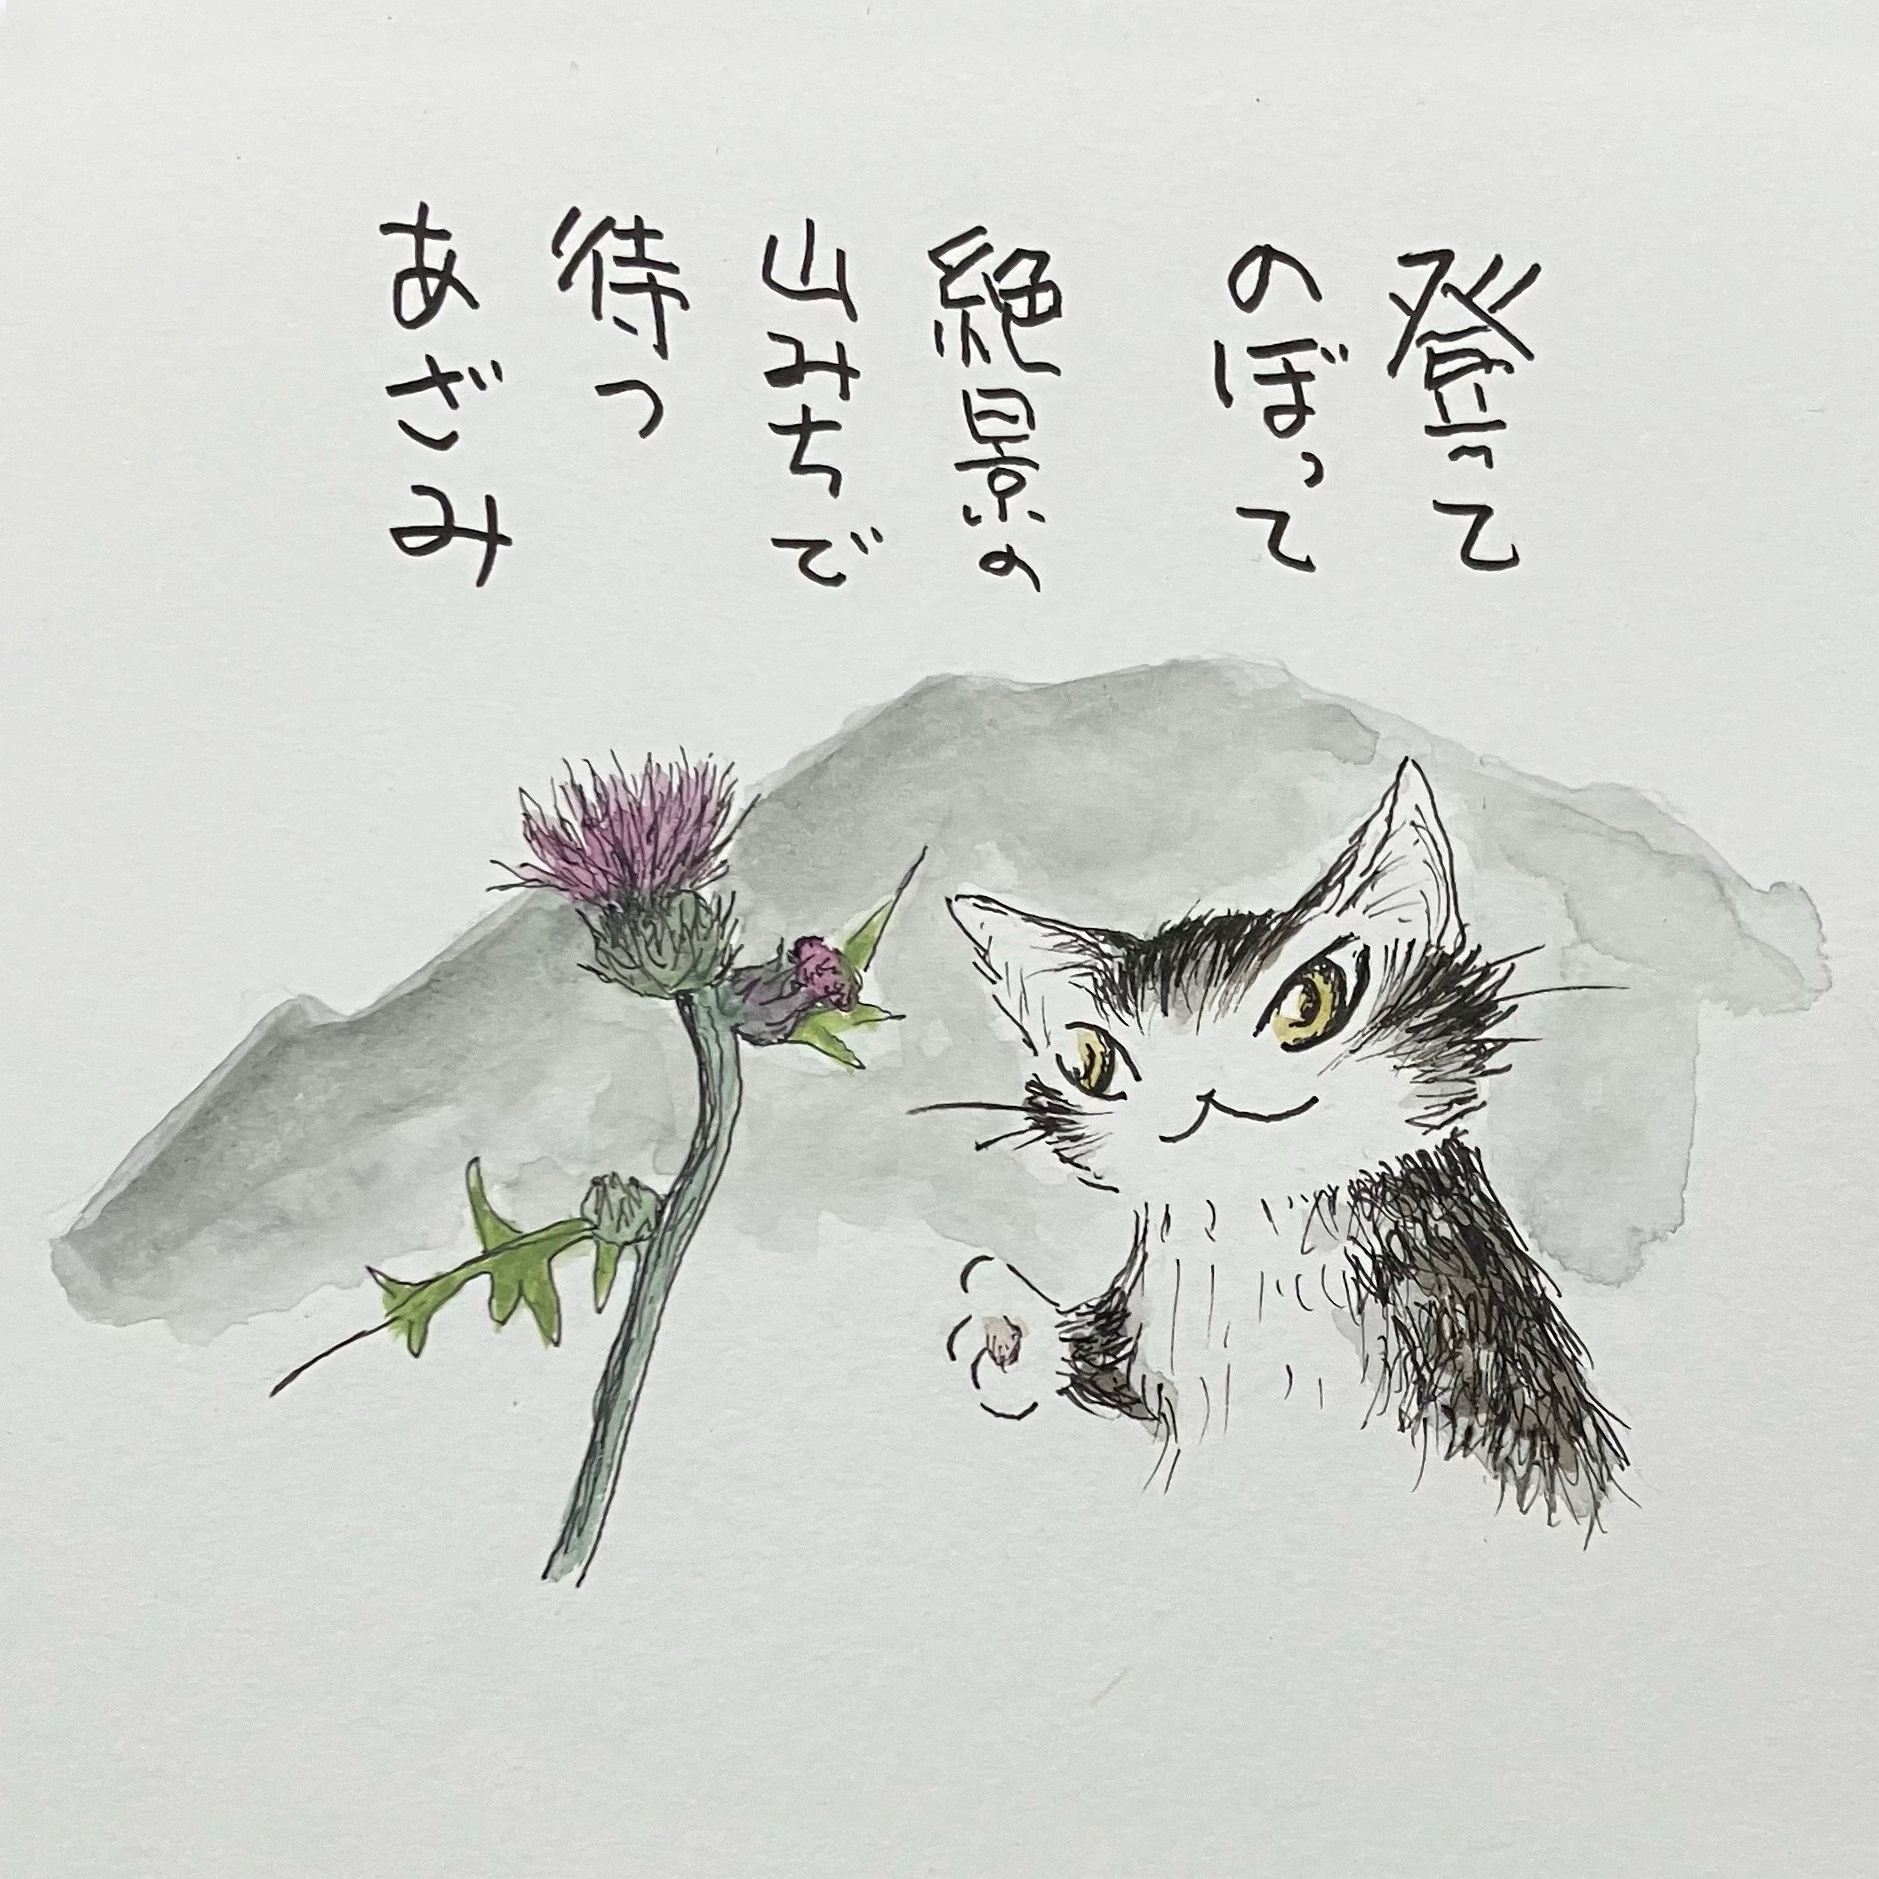 登って
のぼって
絶景の
山みちで
待つ
あざみ